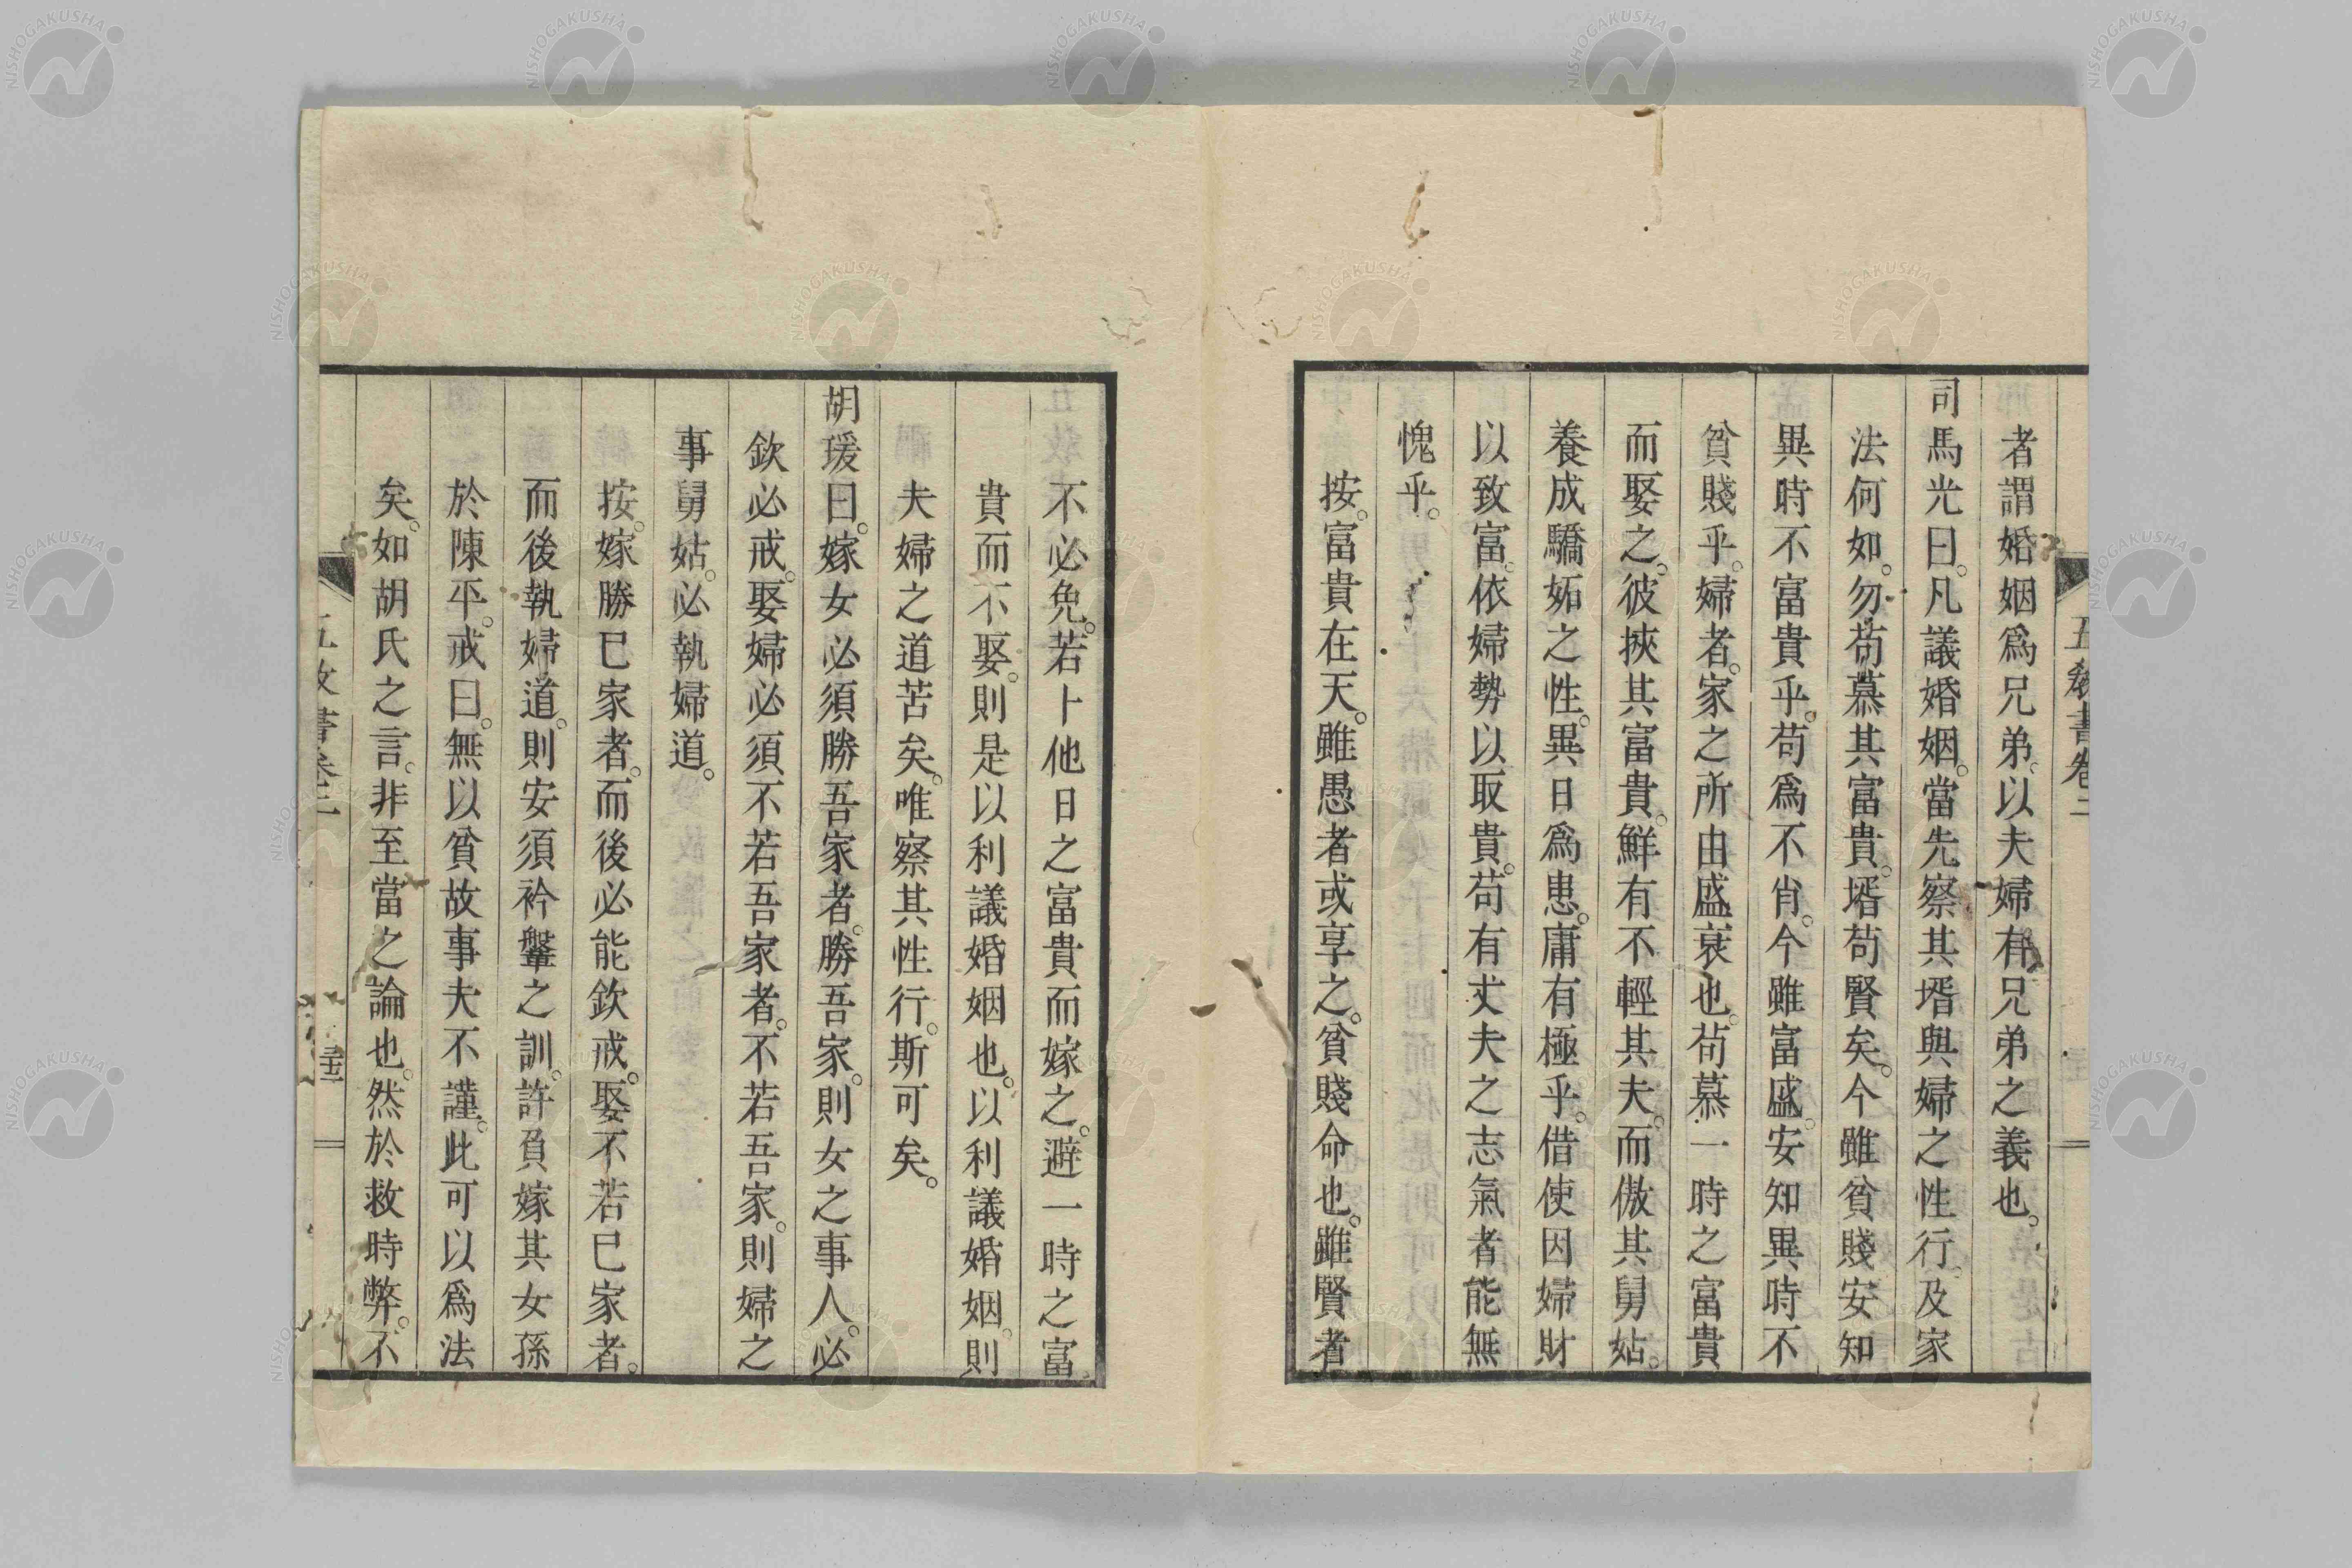 者謂婚姻爲兄弟。以夫婦有兄弟之義也。
司馬光曰。凡議婚姻。當先察其壻與婦之性行。及家
法何如。勿苟慕其富貴。壻苟賢矣。今雖貧賤安知
異時不富貴乎。苟爲不肖。今雖富盛。安知異時不
貧賤乎。婦者。家之所由盛衰也。苟慕一時之富貴
而娶之。彼挾其富貴。鮮有不輕其夫。而傲其舅姑。
養成驕妬之性。異日爲患。庸有極乎。借使因婦財
以致富。依婦勢以取貴。苟有丈夫之志氣者能無
愧乎。
按。富貴在天。雖愚者或享之。貧賤命也。雖賢者
五教書卷二
不必免。若卜他日之富貴而嫁之。避一時之富
貴而不娶。則是以利議婚姻也。以利議婚姻。則
夫婦之道苦矣。唯察其性行。斯可矣。
胡瑗曰。嫁女必須勝吾家者。勝吾家。則女之事人。必
欽必戒。娶婦必須不若吾家者。不若吾家。則婦之
事舅姑。必執婦道。
按。嫁勝巳家者。而後必能欽戒。娶不若巳家者。
而後執婦道。則安須衿鞶之訓。許負嫁其女孫
於陳平。戒曰。無以貧故事夫不謹。此可以爲法
矣。如胡氏之言。非至當之論也。然於救時弊。不
NISHOGAKUSHA